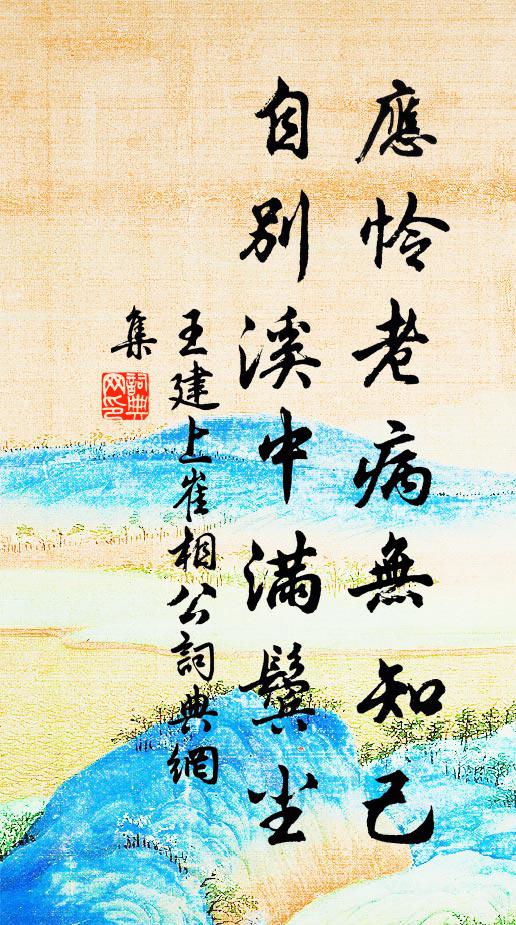 應怜老病無知己
自別溪中滿鬓尘
王建上崔相公詞典網
集
詞典
网印